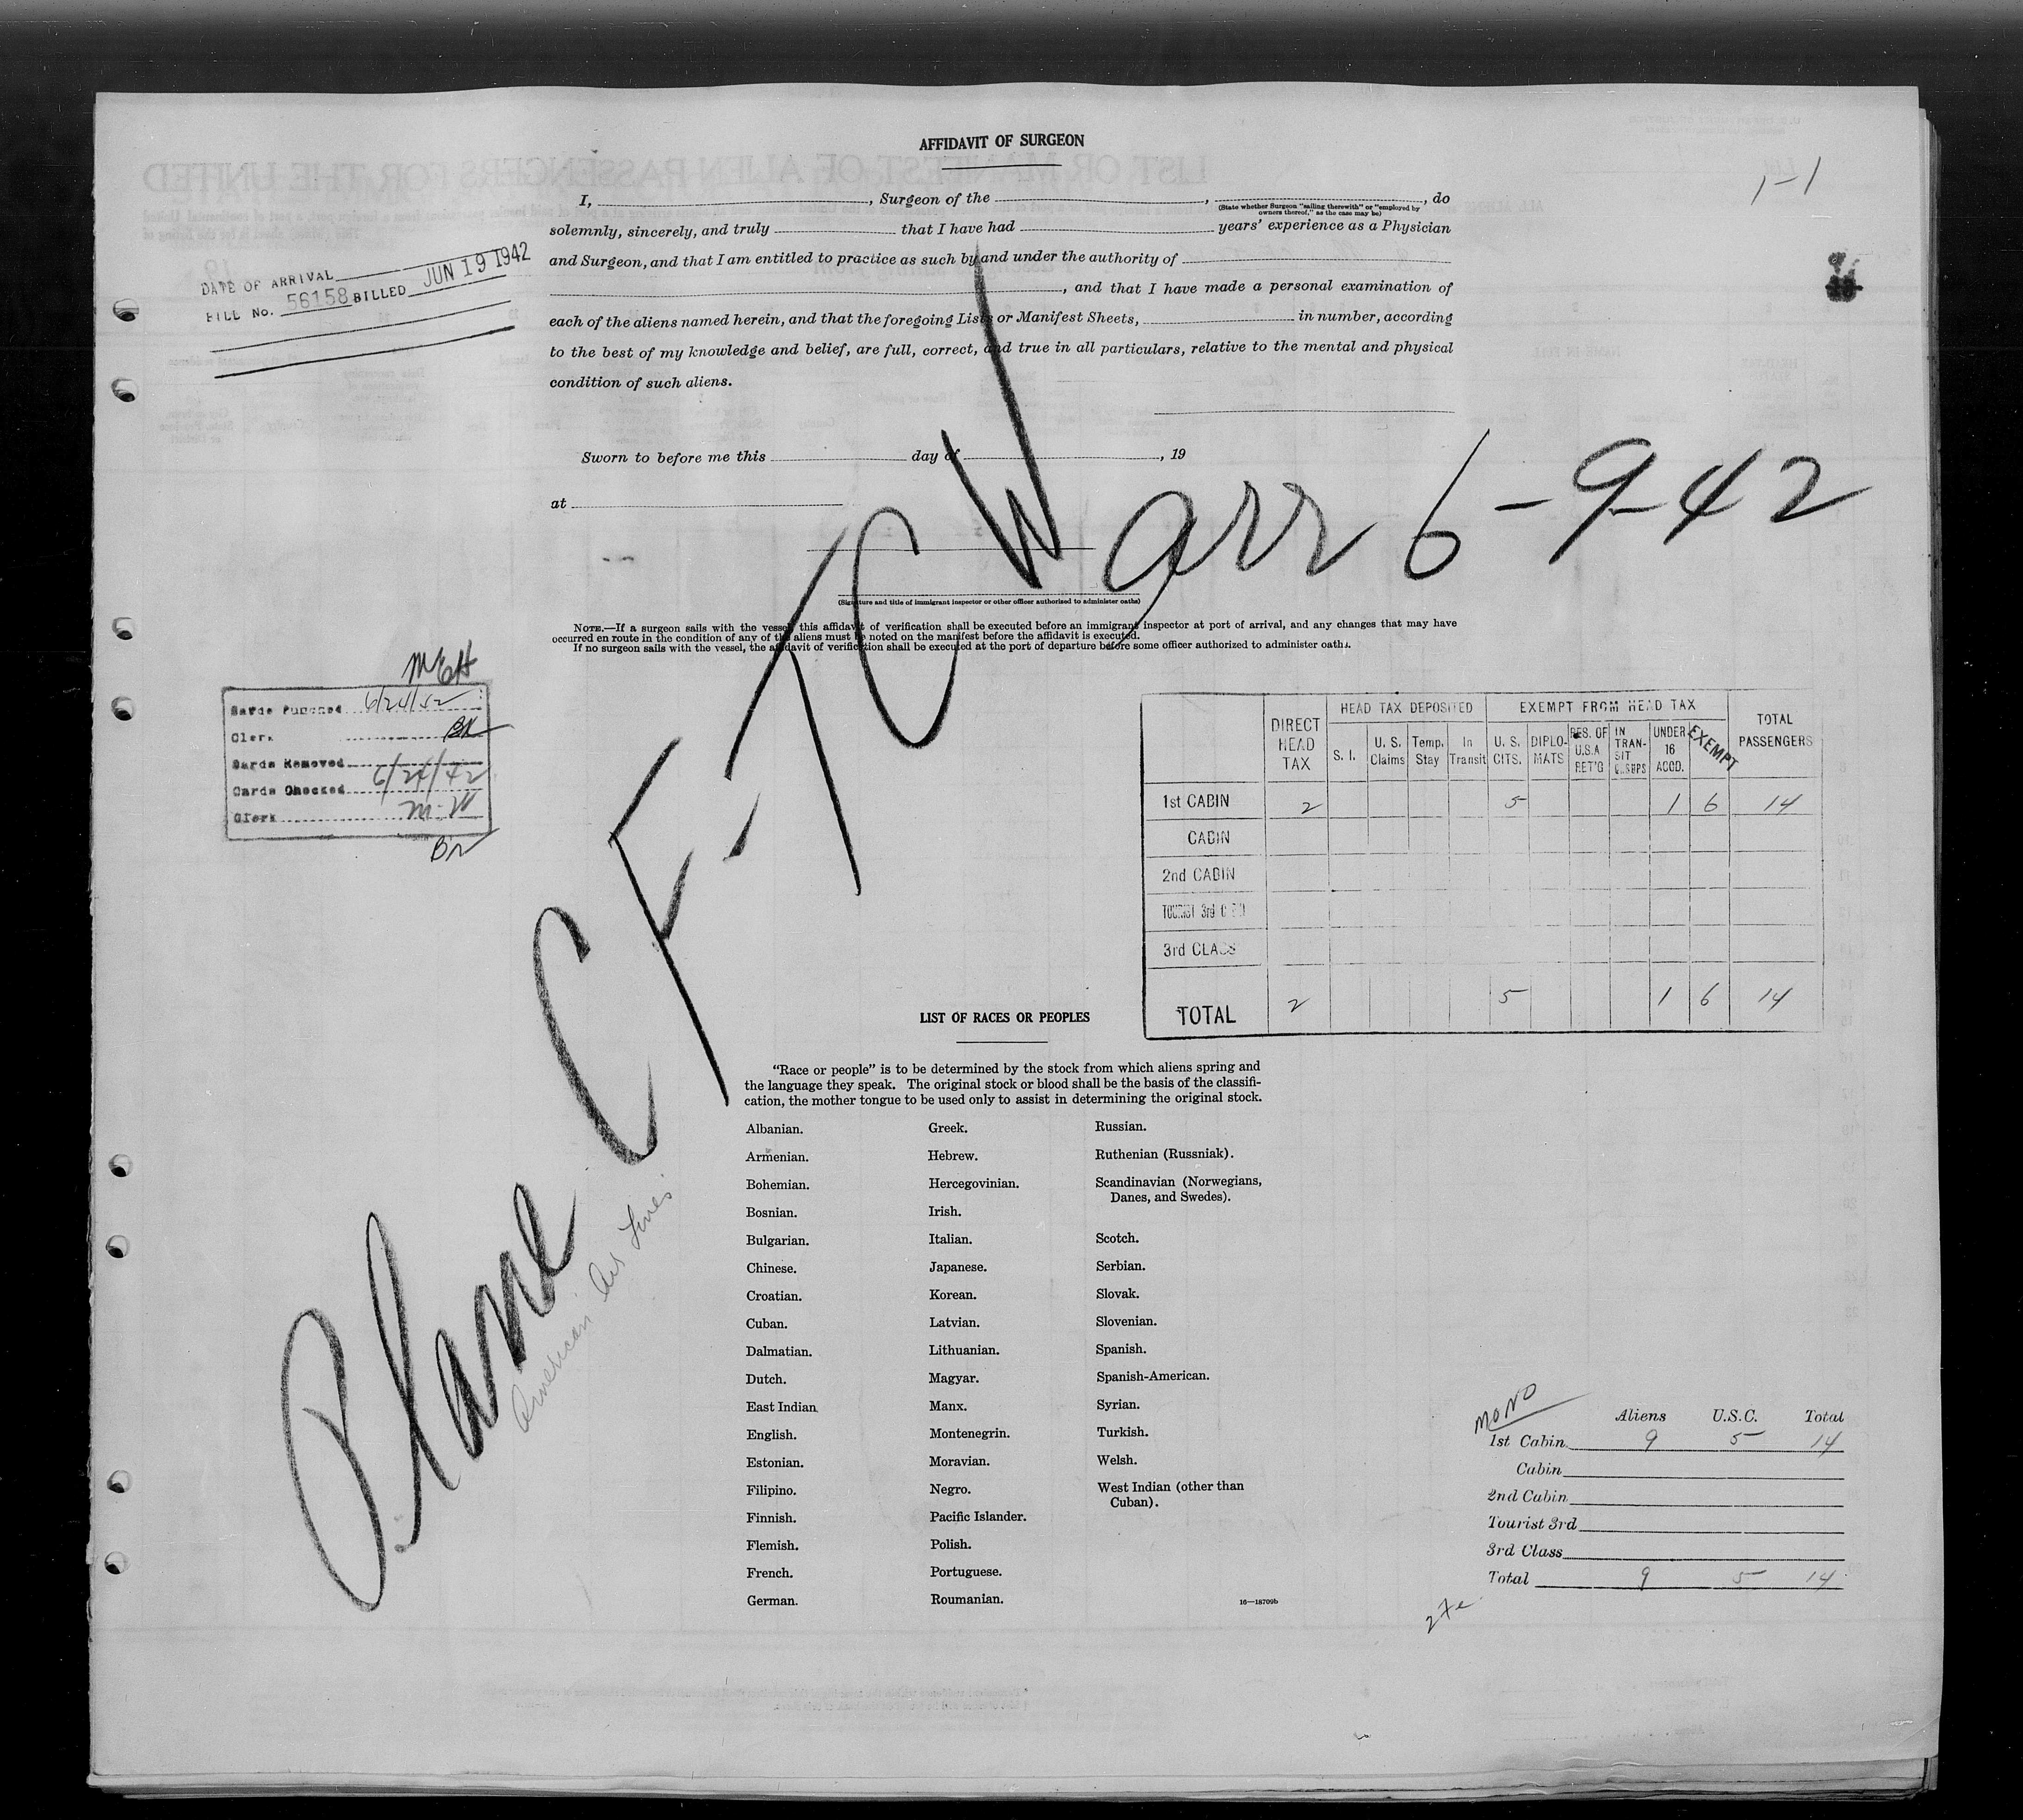 AFFIDAVIT OF SURGEON
1-1
I, , Surgeon of the , , do
(State whether Surgeon "sailing therewith" or "employed by owners thereof," as the case may be)
solemnly, sincerely, and truly that I have had years' experience as a Physician
and Surgeon, and that I am entitled to practice as such by and under the authority of
, and that I have made a personal examination of
each of the aliens named herein, and that the foregoing Lists or Manifest Sheets, in number, according
to the best of my knowledge and belief, are full, correct, and true in all particulars, relative to the mental and physical
condition of such aliens.
DATE OF ARRIVAL
BILL No. 56158 BILLED JUN 19 1942
Sworn to before me this day of , 19
at
(Signature and title of immigrant inspector or other officer authorized to administer oaths)
NOTE.—If a surgeon sails with the vessel, this affidavit of verification shall be executed before an immigrant inspector at port of arrival, and any changes that may have
occurred en route in the condition of any of the aliens must be noted on the manifest before the affidavit is executed.
If no surgeon sails with the vessel, the affidavit of verification shall be executed at the port of departure before some officer authorized to administer oaths.
Plane CF-TCW arr 6-9-42
American Air Lines
MEH
Cards Punched 6/24/42
Clerk BK
Cards Removed
Cards Checked 6/24/42
Clerk
DIRECT HEAD TAX
HEAD TAX DEPOSITED
EXEMPT FROM HEAD TAX
TOTAL PASSENGERS
S. I.
U. S. Claims
Temp. Stay
In Transit
U. S. CITS.
DIPLO-MATS
RES. OF U.S.A RET'G
IN TRAN-SIT
UNDER 16 ACCD.
EXEMPT
1st CABIN 2 5 1 6 14
CABIN
2nd CABIN
TOURIST 3rd
3rd CLASS
TOTAL 2 5 1 6 14
LIST OF RACES OR PEOPLES
"Race or people" is to be determined by the stock from which aliens spring and
the language they speak. The original stock or blood shall be the basis of the classifi-
cation, the mother tongue to be used only to assist in determining the original stock.
Albanian.
Armenian.
Bohemian.
Bosnian.
Bulgarian.
Chinese.
Croatian.
Cuban.
Dalmatian.
Dutch.
East Indian.
English.
Estonian.
Filipino.
Finnish.
Flemish.
French.
German.
Greek.
Hebrew.
Hercegovinian.
Irish.
Italian.
Japanese.
Korean.
Latvian.
Lithuanian.
Magyar.
Manx.
Montenegrin.
Moravian.
Negro.
Pacific Islander.
Polish.
Portuguese.
Roumanian.
Russian.
Ruthenian (Russniak).
Scandinavian (Norwegians,
Danes, and Swedes).
Scotch.
Serbian.
Slovak.
Slovenian.
Spanish.
Spanish-American.
Syrian.
Turkish.
Welsh.
West Indian (other than
Cuban).
16—18709b
MONO
Aliens U.S.C. Total
1st Cabin 9 5 14
Cabin
2nd Cabin
Tourist 3rd
3rd Class
Total 9 5 14